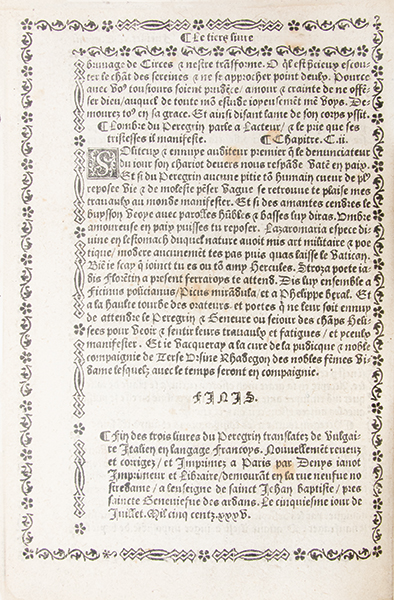 ¶ Le tiers liure
bruuage de Circes & nestre trāsforme. O q̄l est bieuy escou-
ter le chāt des sereines & ne se approcher point deulx. Pource
auec vo⁹ tousiours soient prudēce/ amour & crainte de ne offē-
ser dieu/ auquel de toute mō estude ioyeusement mē voys. De-
mourez to⁹ en sa grace. Et ainsi disant lame de son corps yssit.
¶ Lombre du Peregrin parle a Lacteur/ & le prie que ses
tristesses il manifeste. ¶ Chapitre. C.ii.
Soliteux & ennuye auditeur premier q̄ le denunciateur
du iour son chariot deuers nous respāde Vatē en paix.
Et si du Peregrin aucune pitie tō humain cueur de pl⁹
repose vie & de moleste pēser vague se retrouue te plaise mes
trauaulx au monde manifester. Et si des amantes cendres le
buysson veoye auec parolles hūbles & basses luy diras. Vmbre
amoureuse en paix puisses tu reposer. Lazaromaria espece di-
uine en lestomach duquel nature auoit mis art militaire & poe
tique/ modere aucunement tes pas puis quas laisse le Vatican.
Biē ie scay q̄ ioinct tu es ou tō amy Hercules. Stroza poete ia-
dis Florētin a present ferraroys te attend. Dis luy ensemble a
Ficinus policianus/ Picus mirādula/ et a Philippe beral. Et
a la haulte tourbe des orateurs. et poetes q̄ ne leur soit ennuy
de attendre le Peregrin & Geneure ou seiour des chāps Heli-
sees pour veoir & sentir leurs trauaulx et fatigues/ et yceulx
manifester. Et ie vacqueray a la cure de la pudicque & noble
compaignie de Terse Vrsine Rhadegon des nobles fēmes Vi-
dame lesquelz auec le temps seront en compaignie.
FINIS.
¶ Fin des trois liures du Peregrin translatez de Vulgai-
re Italien en langage Francoys. Nouuellement reueuz
et corrigez/ et Imprimez a Paris par Denys ianot
Imprimeur et Libraire/ demourāt en la rue neufue no
stredame/ a lenseigne de sainct Iehan baptiste/ pres
saincte Geneuiefue des ardans. Le cinquiesme iour de
Iuillet. Mil cinq centz.xxxv.